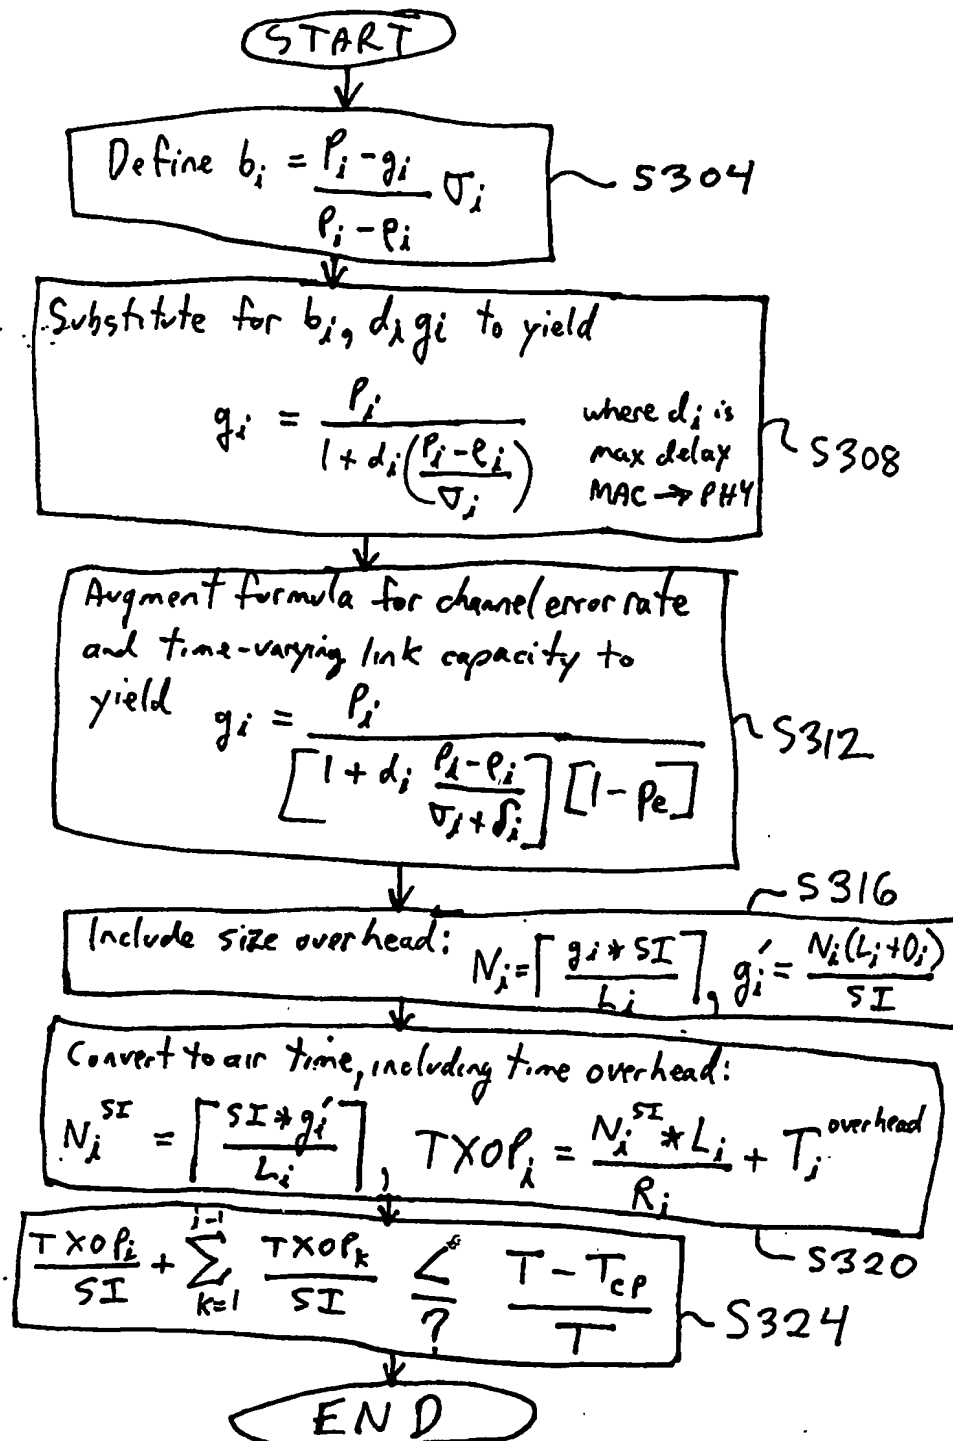 START
Define b_i = (P_i - g_i) / (P_i - ρ_i) σ_i
S304
Substitute for b_i, d_i g_i to yield
g_i = P_i / (1 + d_i((P_i - ρ_i) / σ_i))
where d_i is
max delay
MAC → PHY
S308
Augment formula for channel error rate
and time-varying link capacity to
yield g_i = P_i / ([1 + d_i (P_i - ρ_i) / (σ_i + δ_i)] [1 - p_e])
S312
S316
Include size overhead: N_i = ⌈(g_i * SI) / L_i⌉, g_i' = N_i(L_i + O_i) / SI
Convert to air time, including time overhead:
N_i^SI = ⌈(SI * g_i') / L_i⌉, TXOP_i = (N_i^SI * L_i) / R_i + T_i^overhead
S320
TXOP_i / SI + ∑_{k=1}^{i-1} TXOP_k / SI ≤ ? (T - T_CP) / T
S324
END